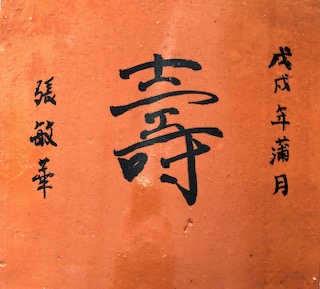 戊戌年蒲月
壽
張敏華